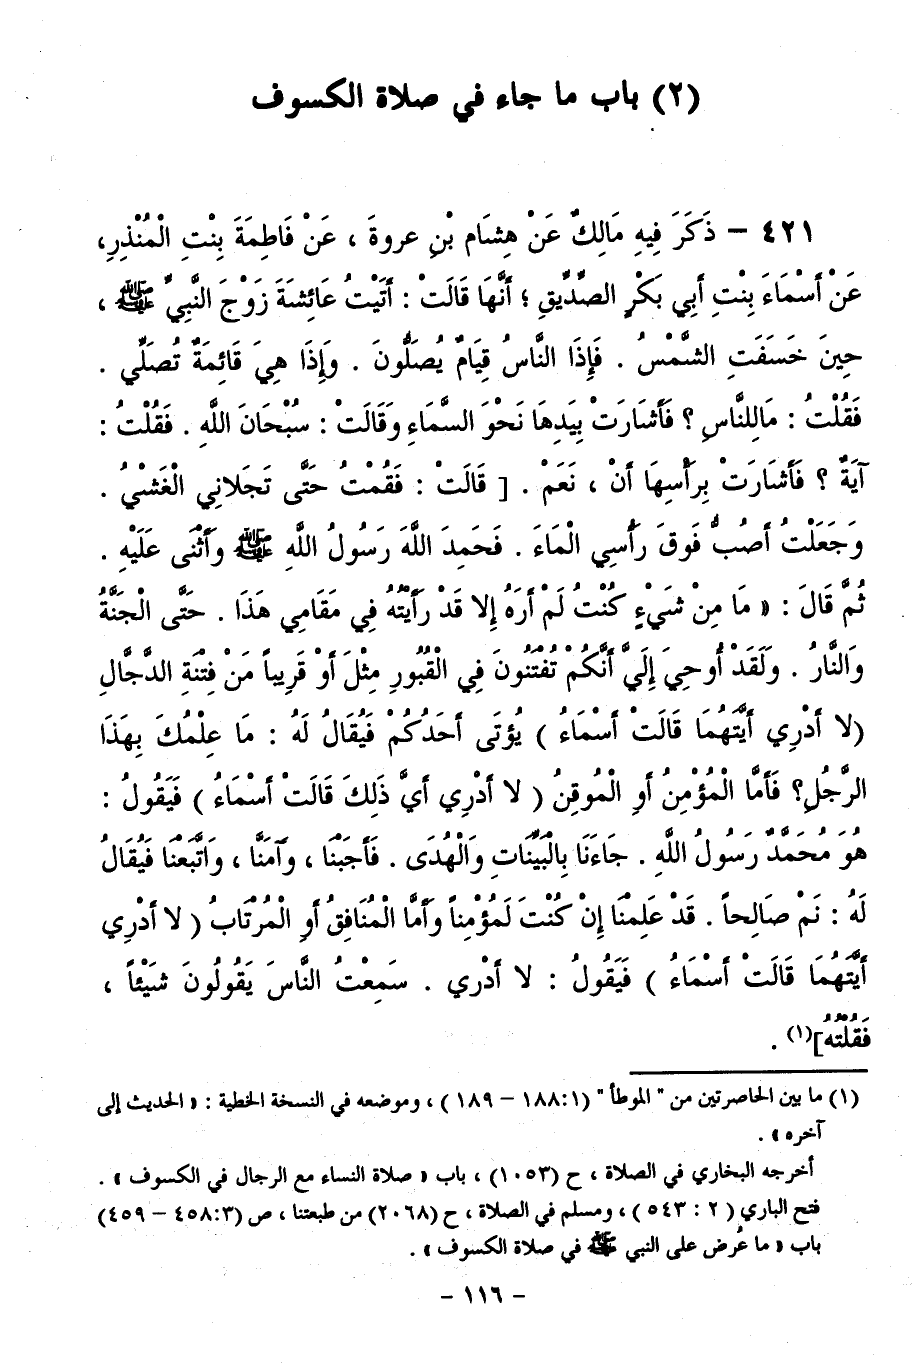 (٢) باب ما جاء في صلاة الكسوف
٤٢١ – ذَكَرَ فِيهِ مَالِكٌ عَنْ هِشَام بْنِ عروةَ ، عَنْ فَاطِمَةَ بِنْتِ الْمُنْذِرِ،
عَنْ أَسْمَاءَ بِنْتِ أَبِي بَكْرٍ الصِّدِّيقِ ؛ أَنَّهَا قَالَتْ : أَتَيْتُ عَائِشَةَ زَوْجَ النَّبِيِّ ﷺ ،
حِينَ خَسَفَتِ الشَّمْسُ . فَإِذَا النَّاسُ قِيَامٌ يُصَلُّونَ . وَإِذَا هِيَ قَائِمَةٌ تُصَلِّي .
فَقُلْتُ : مَالِلنَّاسِ ؟ فَأَشَارَتْ بِيَدِهَا نَحْوَ السَّمَاءِ وَقَالَتْ : سُبْحَانَ اللَّهِ . فَقُلْتُ :
آيَةٌ ؟ فَأَشَارَتْ بِرَأْسِهَا أَنْ ، نَعَمْ . [ قَالَتْ : فَقُمْتُ حَتَّى تَجَلانِي الْغَشْيُ .
وَجَعَلْتُ أَصُبُّ فَوقَ رَأْسِي الْمَاءَ . فَحَمِدَ اللَّهَ رَسُولُ اللَّهِ ﷺ وأَثْنَى عَلَيْهِ .
ثُمَّ قَالَ : « مَا مِنْ شَيْءٍ كُنْتُ لَمْ أَرَهُ إِلا قَدْ رَأَيْتُهُ فِي مَقَامِي هَذَا . حَتَّى الْجَنَّةُ
وَالنَّارُ . وَلَقَدْ أُوحِيَ إِلَيَّ أَنَّكُمْ تُفْتَنُونَ فِي الْقُبُورِ مِثْلَ أَوْ قَرِيباً مَنْ فِتْنَةِ الدَّجَّالِ
(لا أَدْرِي أَيَّتَهُمَا قَالَتْ أَسْمَاءُ ) يُؤتَى أَحَدُكُمْ فَيُقَالُ لَهُ : مَا عِلْمُكَ بِهَذَا
الرَّجُلِ؟ فَأَمَّا الْمُؤْمِنُ أَوِ الْمُوقِنُ ( لا أَدْرِي أَيَّ ذَلِكَ قَالَتْ أَسْمَاءُ ) فَيَقُولُ :
هُوَ مُحَمَّدٌ رَسُولُ اللَّهِ . جَاءَنَا بِالْبَيِّنَاتِ وَالْهُدَى . فَأَجَبْنَا ، وَآمَنَّا ، وَاتَّبَعْنَا فَيُقَالُ
لَهُ : نَمْ صَالِحاً . قَدْ عَلِمْنَا إِنْ كُنْتَ لَمُؤْمِناً وَأَمَّا الْمُنَافِقُ أَوِ الْمُرْتَابُ ( لا أَدْرِي
أَيَّتَهُمَا قَالَتْ أَسْمَاءُ ) فَيَقُولُ : لا أَدْرِي . سَمِعْتُ النَّاسَ يَقُولُونَ شَيْئاً ،
فَقُلْتُهُ](١) .
(١) ما بين الحاصرتين من " الموطأ " (١٨٨:١ – ١٨٩ ) ، وموضعه في النسخة الخطية : « الحديث إلى
آخره » .
أخرجه البخاري في الصلاة ، ح (١٠٥٣) ، باب « صلاة النساء مع الرجال في الكسوف » .
فتح الباري ( ٢ : ٥٤٣ ) ، ومسلم في الصلاة ، ح (٢٠٦٨) من طبعتنا ، ص (٤٥٨:٣ – ٤٥٩)
باب « ما عُرض على النبي ﷺ في صلاة الكسوف » .
– ١١٦ –